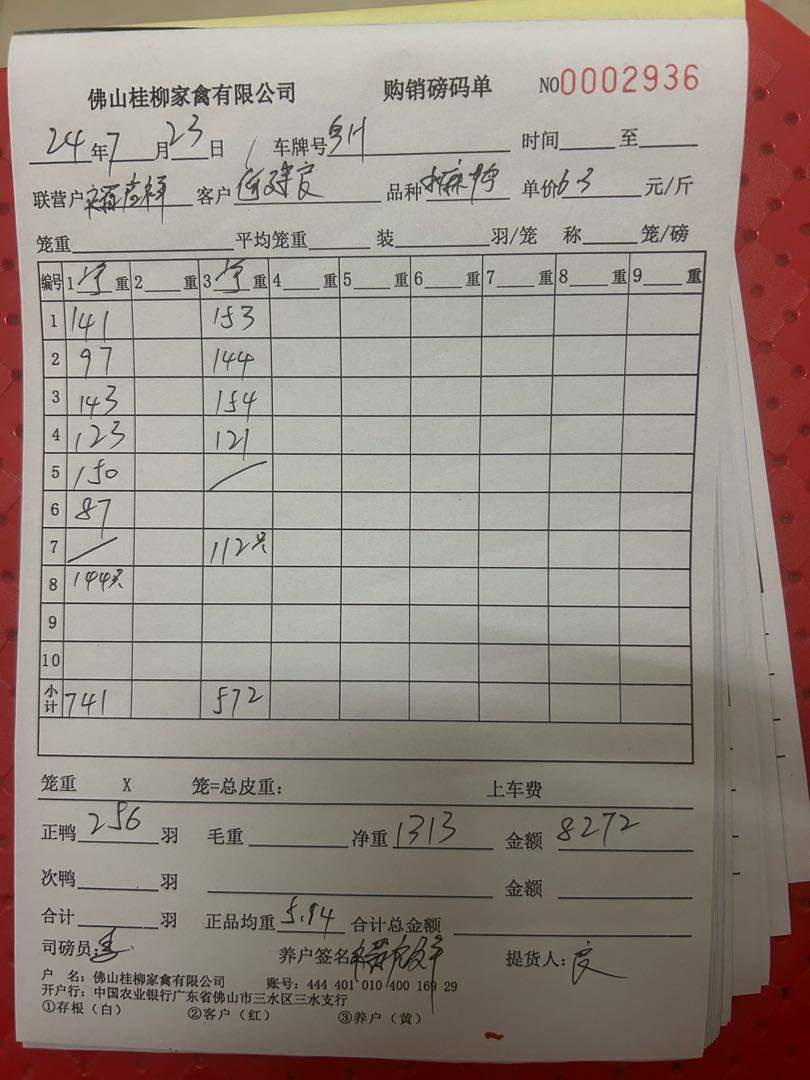 佛山桂柳家禽有限公司 购销磅码单 NO0002936
24年7月23日 车牌号 时间 至
联营户 客户 品种 单价63元/斤
笼重 平均笼重 装 羽/笼 称 笼/磅
编号 1 重 2 重 3 重 4 重 5 重 6 重 7 重 8 重 9 重
1 141 153
2 97 144
3 143 154
4 123 121
5 150
6 87
7 112只
8 144只
9
10
小计 741 572
笼重 X 笼=总皮重: 上车费
正鸭256羽 毛重 净重1313 金额8272
次鸭 羽 金额
合计 羽 正品均重5.94 合计总金额
司磅员: 养户签名 提货人:良
户 名: 佛山桂柳家禽有限公司 账号: 444 401 010 400 169 29
开户行: 中国农业银行广东省佛山市三水区三水支行
①存根(白) ②客户(红) ③养户(黄)